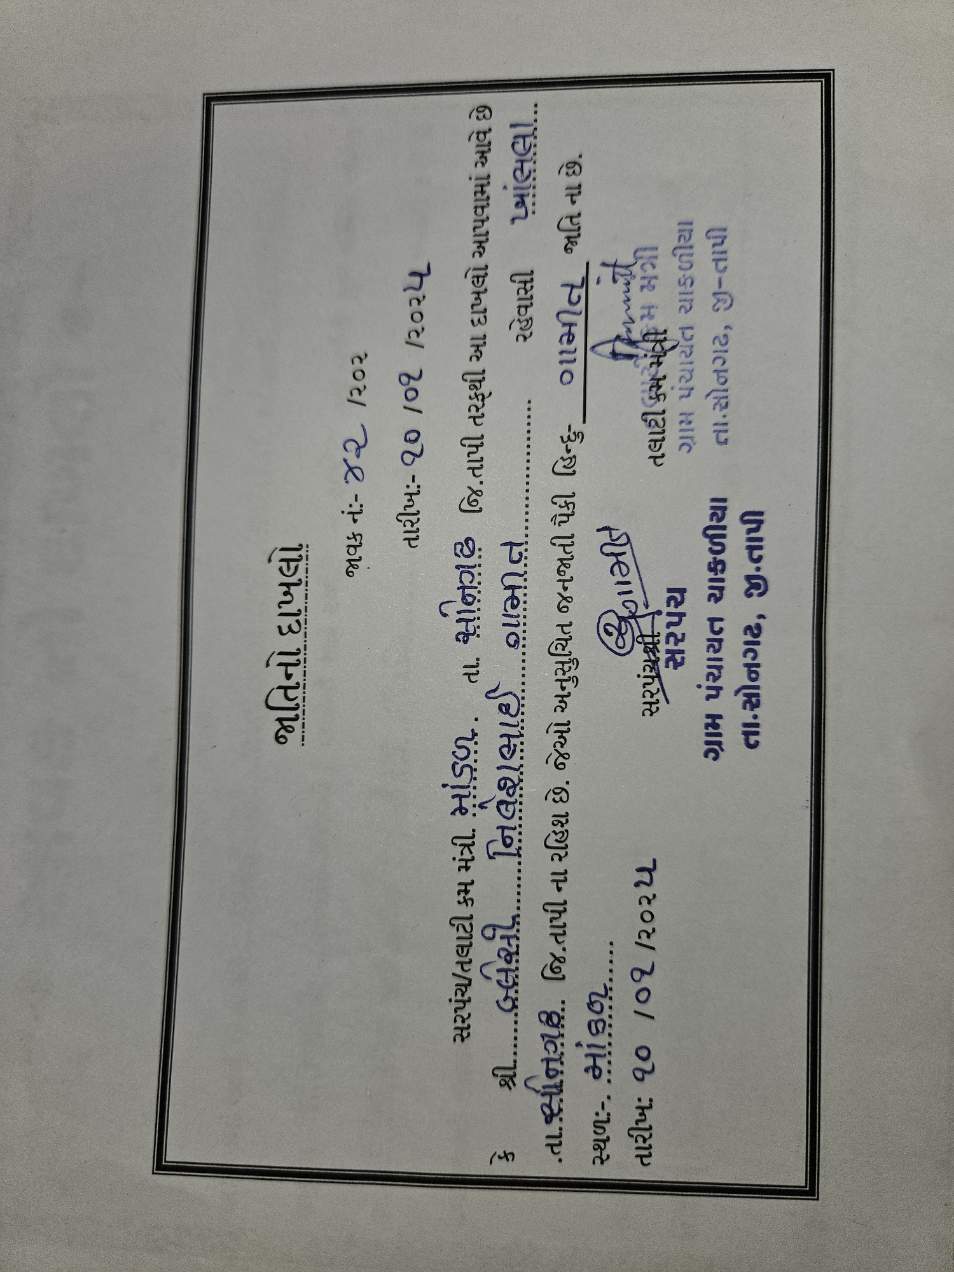 જાતિનો દાખલો
જાવક નં:- ૪૨ /૨૦૨
તારીખ:- ૧૦ /૦૧ /૨૦૨૫
સરપંચ/તલાટી કમ મંત્રી. માંડળ . તા. સોનગઢ જિ.તાપી તરફથી આ દાખલો આપવામાં આવે છે
કે શ્રી...... નિલેશભાઈ ગામીત રહેવાસી
.તા..સોનગઢ.. જિ.તાપી ના રહિશ છે. જેઓ અનુસુચિત જનજાતી પૈકી હિન્દુ- ગામીત જાતિ ના છે.
સ્થળ:-. માંડળ......
તારીખ: ૧૦ /૦૧ /૨૦૨૫
સરપંચશ્રી
સરપંચ
ગ્રામ પંચાયત ચાકળીયા
તા.સોનગઢ, જી.તાપી
તલાટી કમ મંત્રી
ગ્રામ પંચાયત ચાકળીયા
તા.સોનગઢ, જી-તાપી